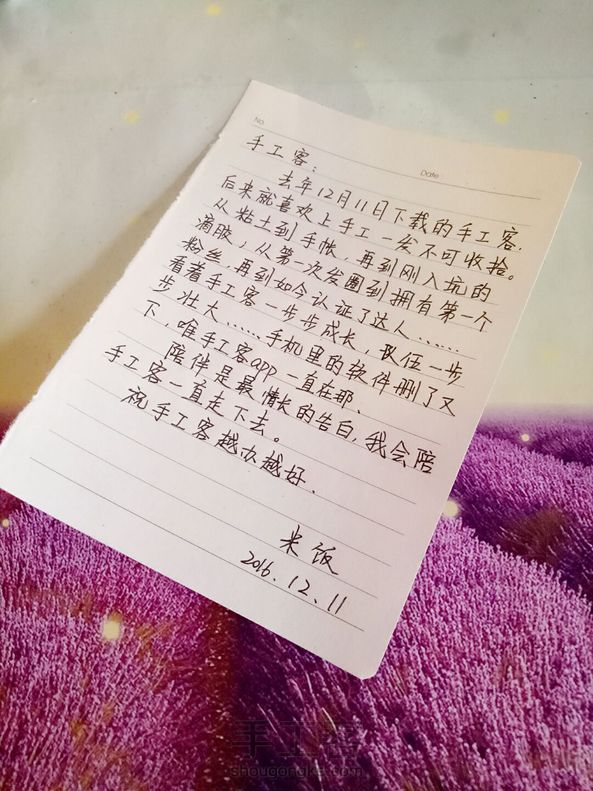 No.
Date
手工客：
去年12月11日下载的手工客.
后来就喜欢上手工一发不可收拾。
从粘土到手帐，再到刚入坑的
滴胶，从第一次发圈到拥有第一个
粉丝，再到如今认证了达人……
看着手工客一步步成长，队伍一步
步壮大……手机里的软件删了又
下，唯手工客app一直在那、
陪伴是最情长的告白，我会陪
手工客一直走下去。
祝手工客越办越好、
米饭
2016.12.11
手工客
shougongke.com